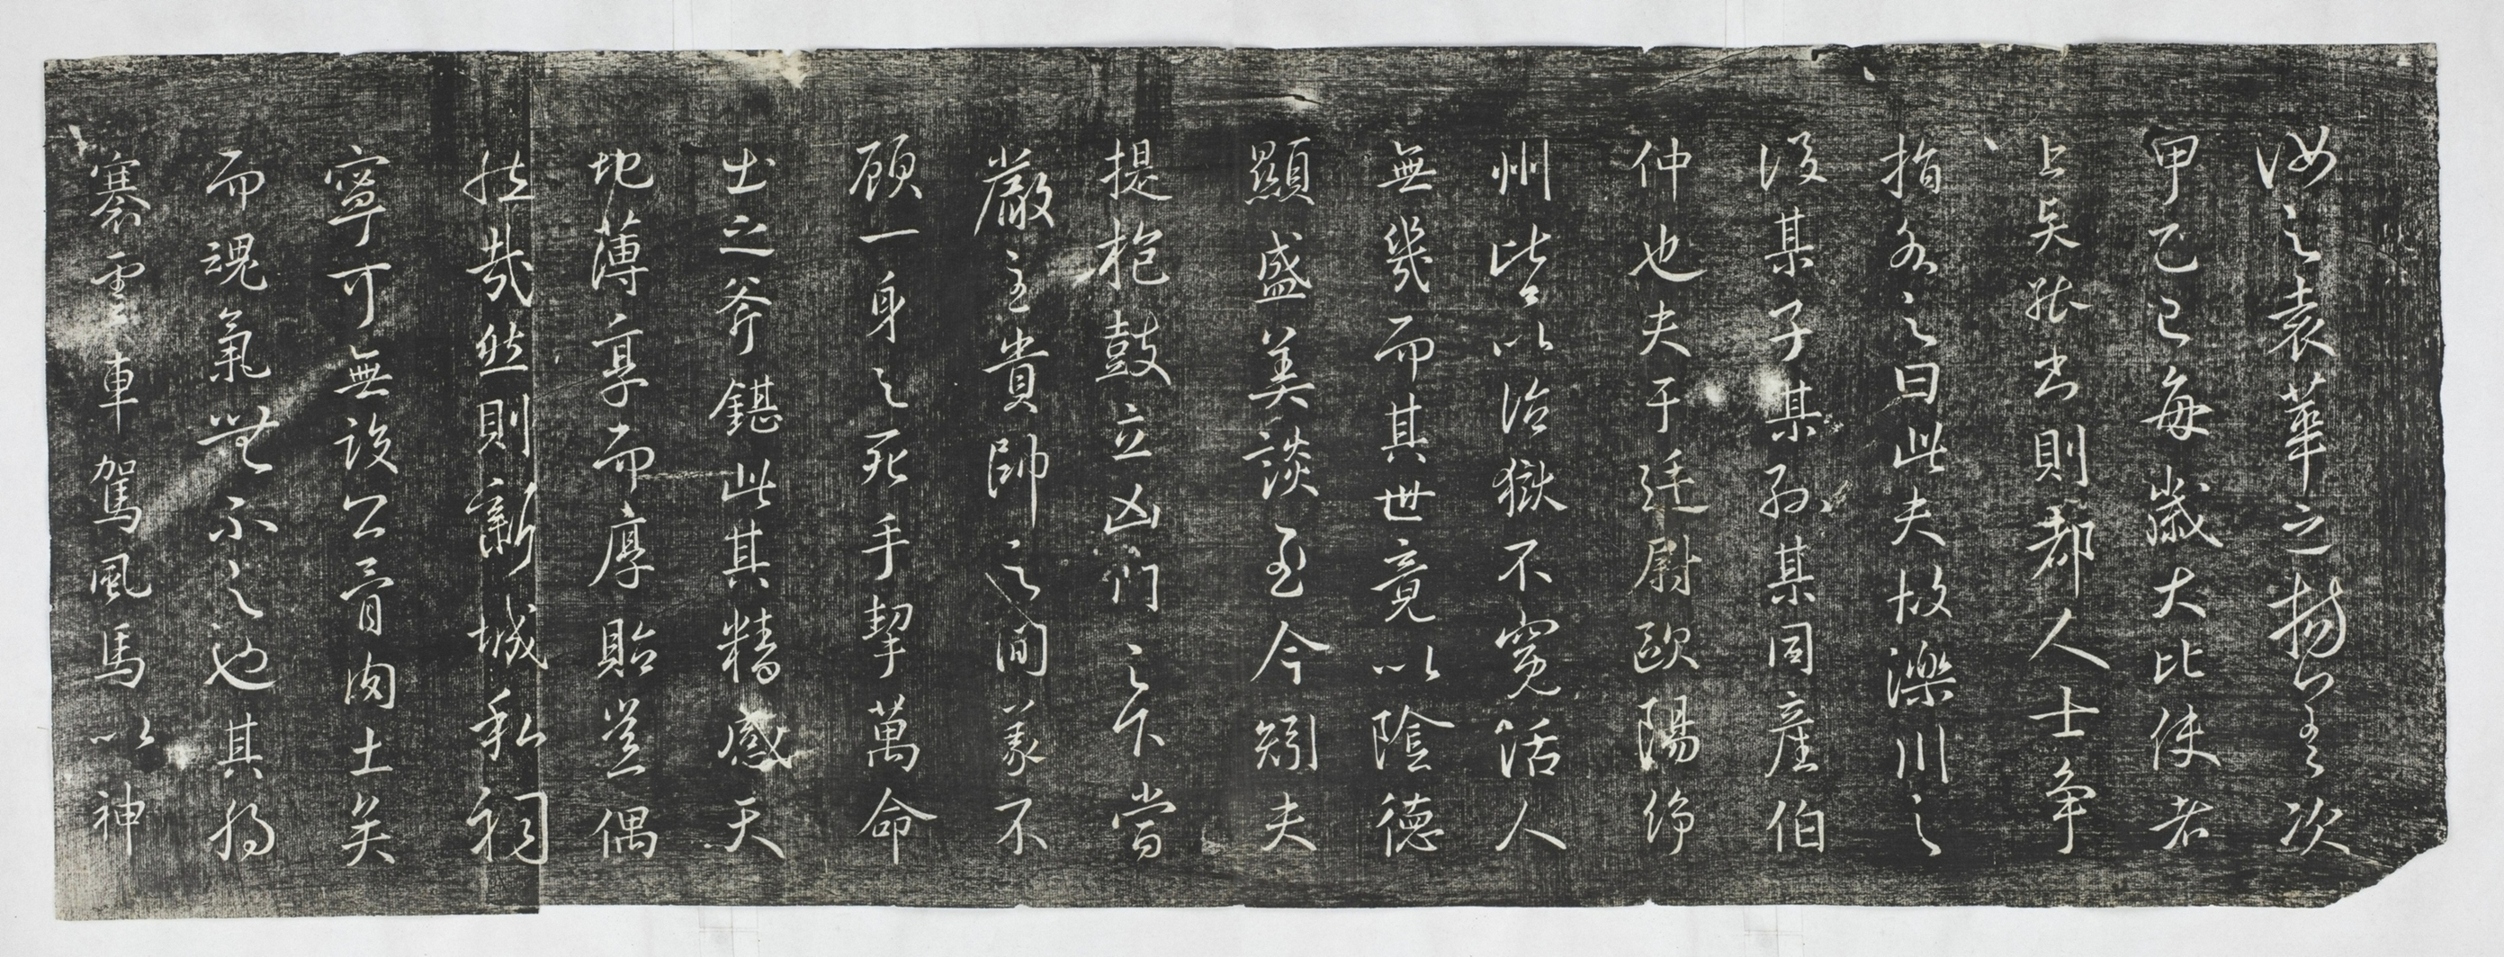 汝之袁華之揚公玉次
甲乙已每歲大比使者
上吳張书則郡人士争
指名之曰此夫故濼川之
後某子某孙某固産伯
仲也夫于廷尉歐陽侍
州皆以治獄不寃活人
無幾而其世竟以陰德
顯盛美談至今矧夫
提枹鼓立凶門之下當
嚴主貴帥之间義不
顾一身之死手挈萬命
出之斧鑕此其精感天
地薄享而厚貽豈偶
然哉然則新城私祠
寧可無設公胥肉土矣
而魂氣無不之也其将
褰雲車駕風馬以神